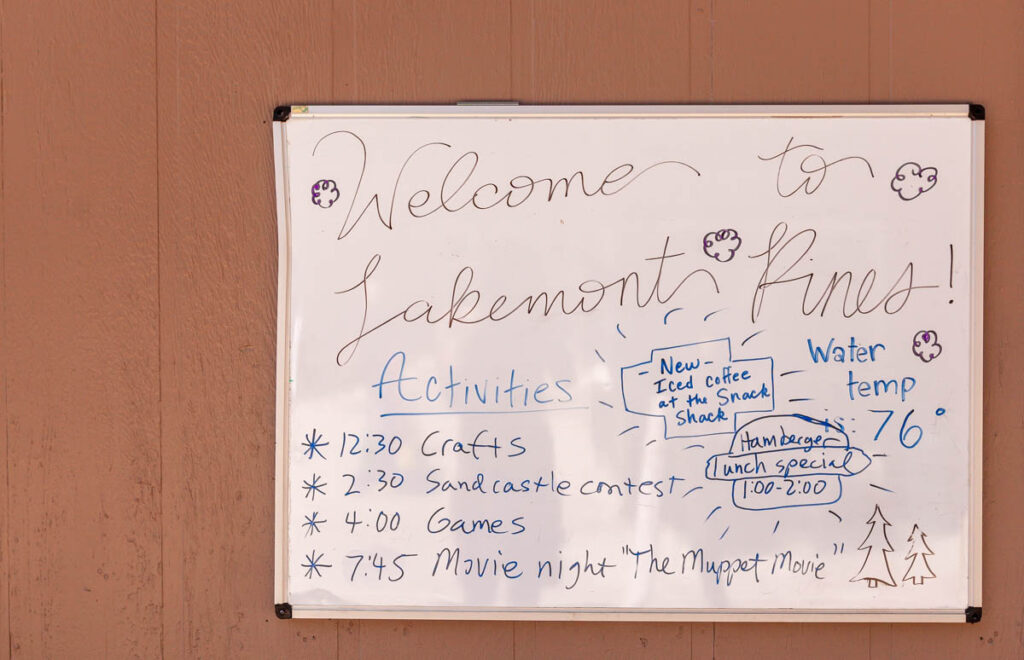 Welcome to
Lakemont Pines!
Activities
* 12:30 Crafts
* 2:30 Sandcastle contest
* 4:00 Games
* 7:45 Movie night "The Muppet Movie"
- New -
Iced coffee
at the Snack
Shack
Hamberger
lunch special
1:00-2:00
Water
temp
is: 76°